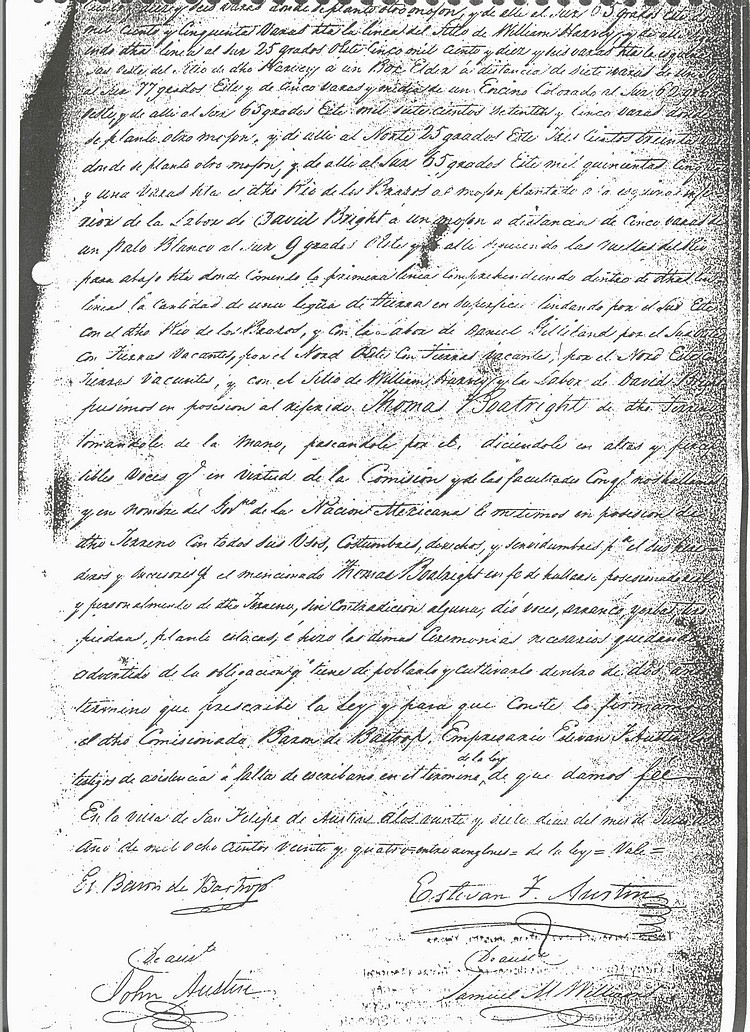 varas donde se planto otro mojon, y de alli al Sur 65 grados Este
mil ciento y cinquenta Varas hta la linea del Sitio de William Harvey, y de alli
otra linea al Sur 25 grados Oeste Cinco mil ciento y diez y seis varas hta la esquina
oeste del Sitio de dho Harvey a un Box Elder a distancia de siete varas de un
al Sur 77 grados Este y de Cinco varas y media de un Encino Colorado al Sur 62
y de alli al Sur 65 grados Este mil siete cientos setenta y cinco varas donde
se planto otro mojon, y de alli al Norte 25 grados Este Tres cientos treinta
donde se planto otro mojon, y de alli al Sur 65 grados Este mil quinientas
y una Varas hta el dho Rio de los Brazos a un mojon plantado a la esquina
de la Labor de David Bright a un mojon a distancia de Cinco varas de
un Palo Blanco al Sur 9 grados Oeste y de alli siguiendo las vueltas del Rio
para abajo hta donde Comenso la primera linea Comprehendiendo dentro de
lineas la Cantidad de una legua de tierra en superficie lindando por el Sur Este
con el dho Rio de los Brazos, y con la Labor de Daniel Gilliland por el Sud
Con Tierras Vacantes, por el Nord Oeste Con Tierras vacantes, por el Nord Este Con
Tierras Vacantes, y con el Sitio de William Harvey y la Labor de David
pusimos en posesion al referido Thomas Boatright de dho Terreno
tomandole de la mano, paseandole por el, diciendole en altas y
voces qe en virtud de la Comision y de las facultades Conqe nos hallamos
y en nombre del Govno de la Nacion Mexicana le metimos en posesion de
dho Terreno Con todos sus Usos, Costumbres, derechos, y servidumbres pa el sus
y sucesores y el mencionado Thomas Boatright en fe de hallarse posesionado real
y personalmente de dho Terreno, sin Contradicion alguna, dió voces, arrancó yerbas,
piedras, plantó estacas, é hizo las demas Ceremonias necesarias quedando
advertido de la obligacion qe tiene de poblarlo y cultivarlo dentro de dos años
termino que prescribe la Ley y para que Conste lo firmamos
el dho Comisionado Baron de Bastrop, Empresario Estevan F. Austin
de la ley
testigos de asistencia á falta de escribano en el termino, de que damos feé
En la Villa de San Felipe de Austin á los veinte y siete dias del mes de Julio
año de mil ocho cientos veinte y quatro = entre renglones = de la ley = Vale =
El Baron de Bastrop
Estevan F. Austin
De assta
De assa
John Austin
Samuel M. Williams